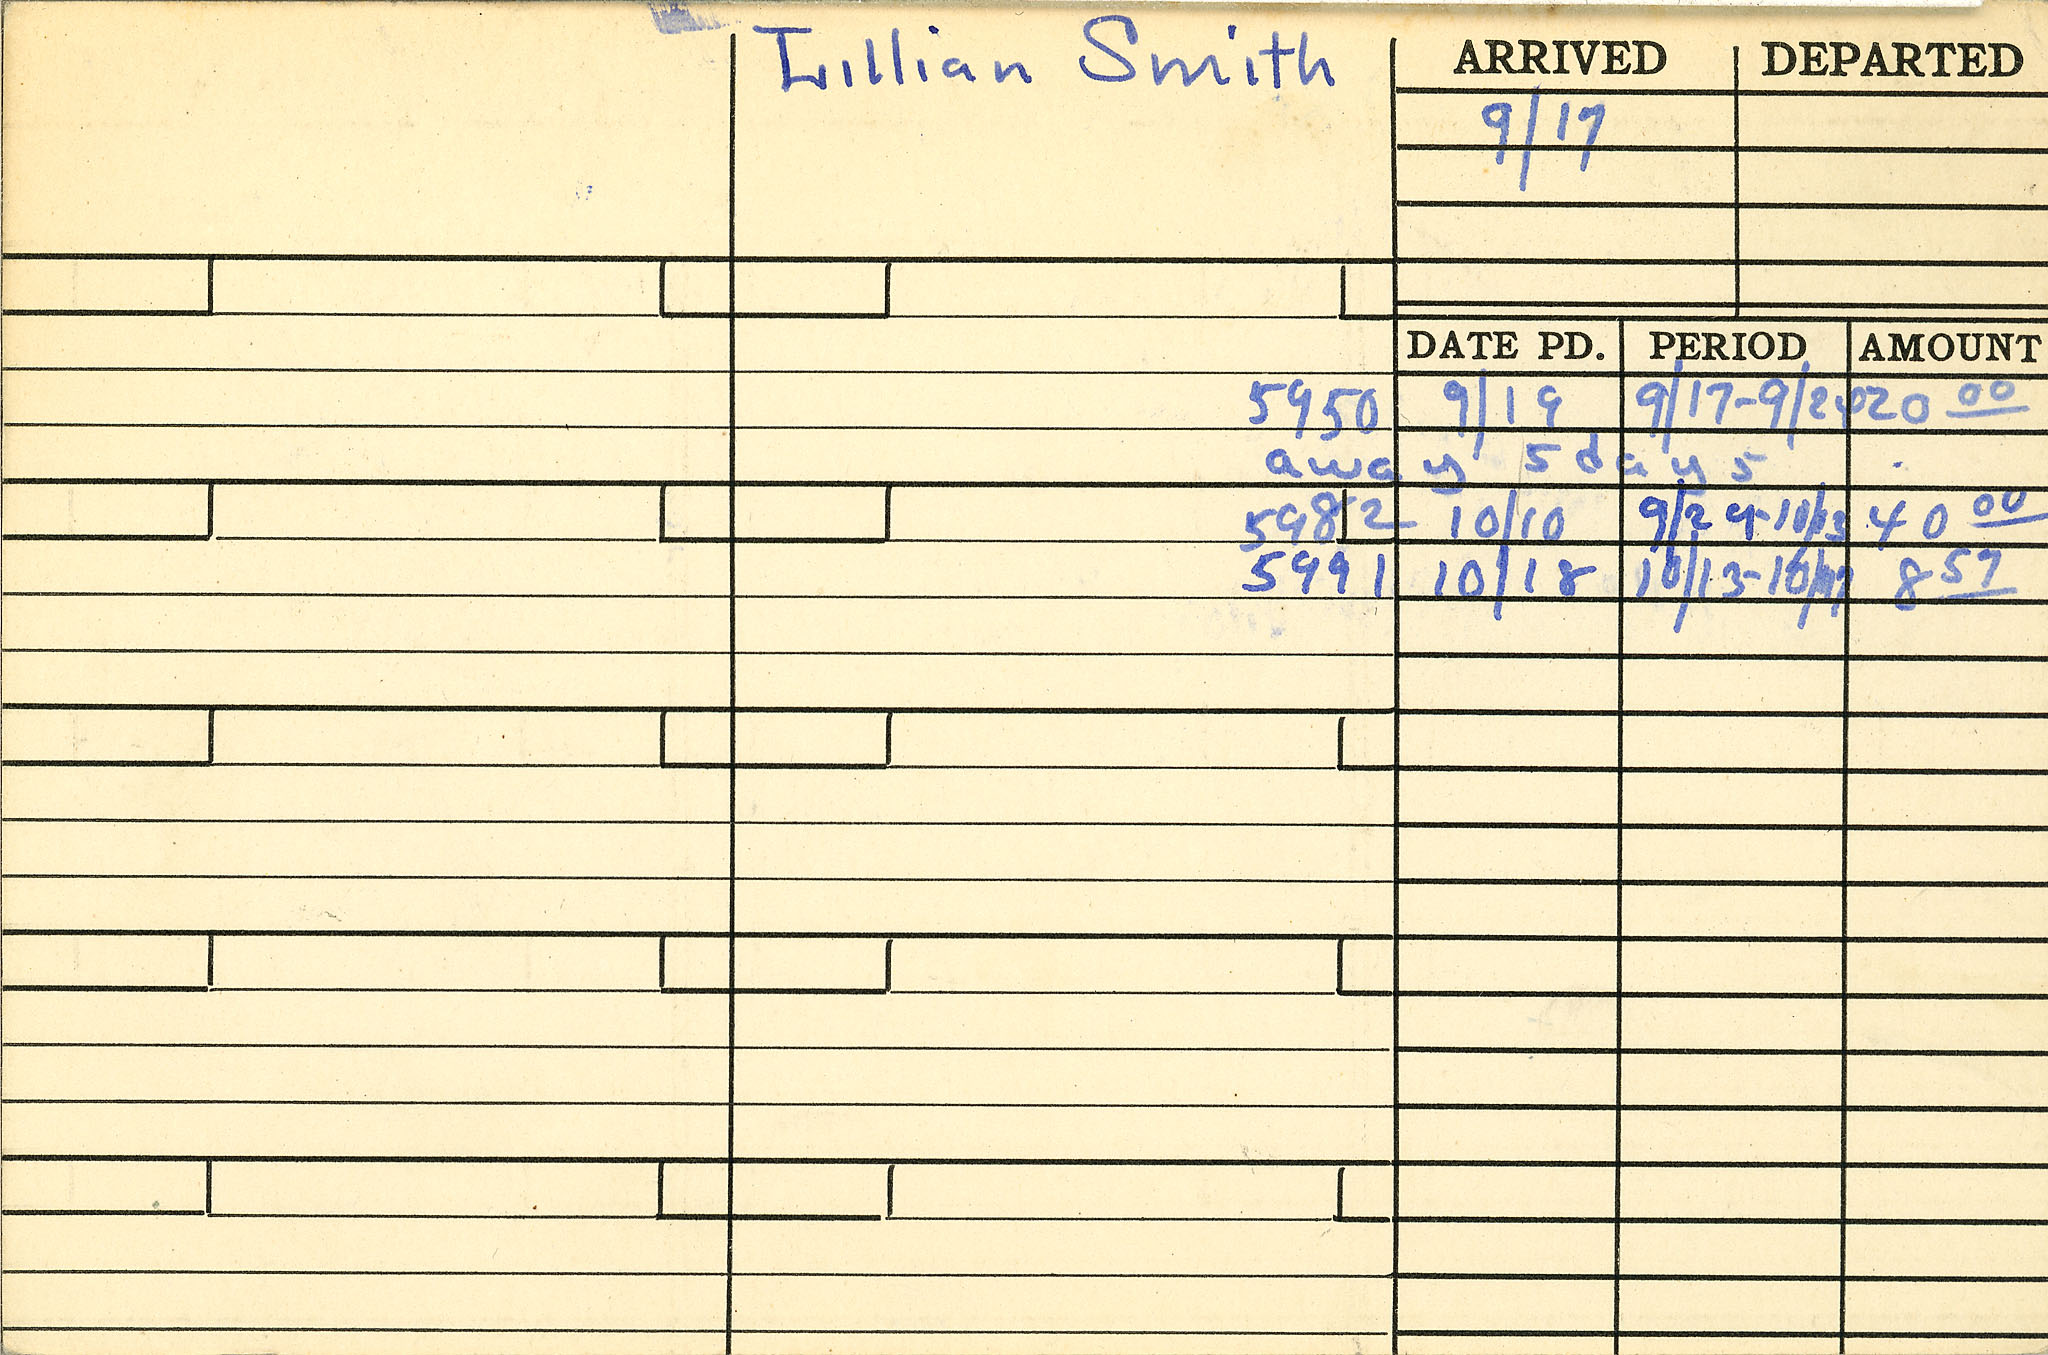 Lillian Smith
ARRIVED DEPARTED
9/17
DATE PD. PERIOD AMOUNT
5950 9/19 9/17-9/24 20 00
away 5 days
5982 10/10 9/29-10/13 40 00
5991 10/18 10/13-10/17 8 57